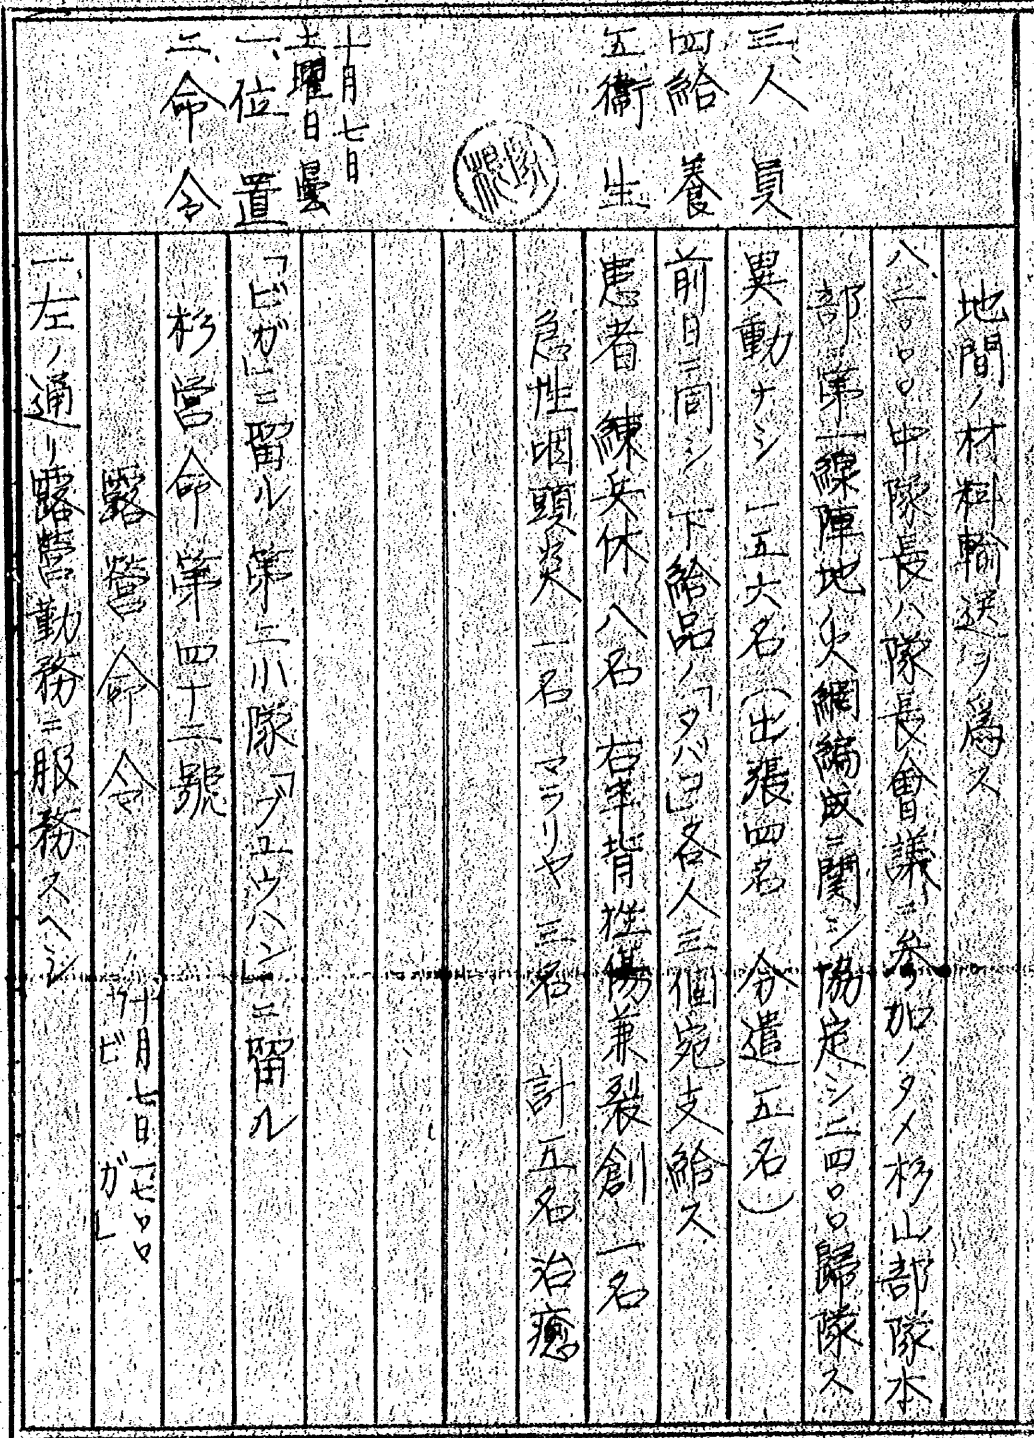 地間ノ材料輸送ヲ爲ス
八、二〇〇〇中隊長ハ隊長會議ニ参加ノタメ杉山部隊本
部ニ第一線陣地火網編成ニ関シ協定シ二四〇〇歸隊ス
三、人員
異動ナシ 一五六名(出張四名 分遣五名)
四給養
前日ニ同シ 下給品ノ「タバコ」各人三個宛支給ス
五衞生
患者 練兵休 八名 右 背 傷兼裂創 一名
急性咽頭炎 一名 マラリヤ 三名 計五名治癒
十月七日
土曜日曇
一、位置
「ビガ」ニ留ル 第二小隊「ブユウハン」ニ留ル
二、命令
杉山命第四十二號
露營命令
十月七日一七〇〇
ビガ」
一、左ノ通リ露營勤務ニ服務スヘシ